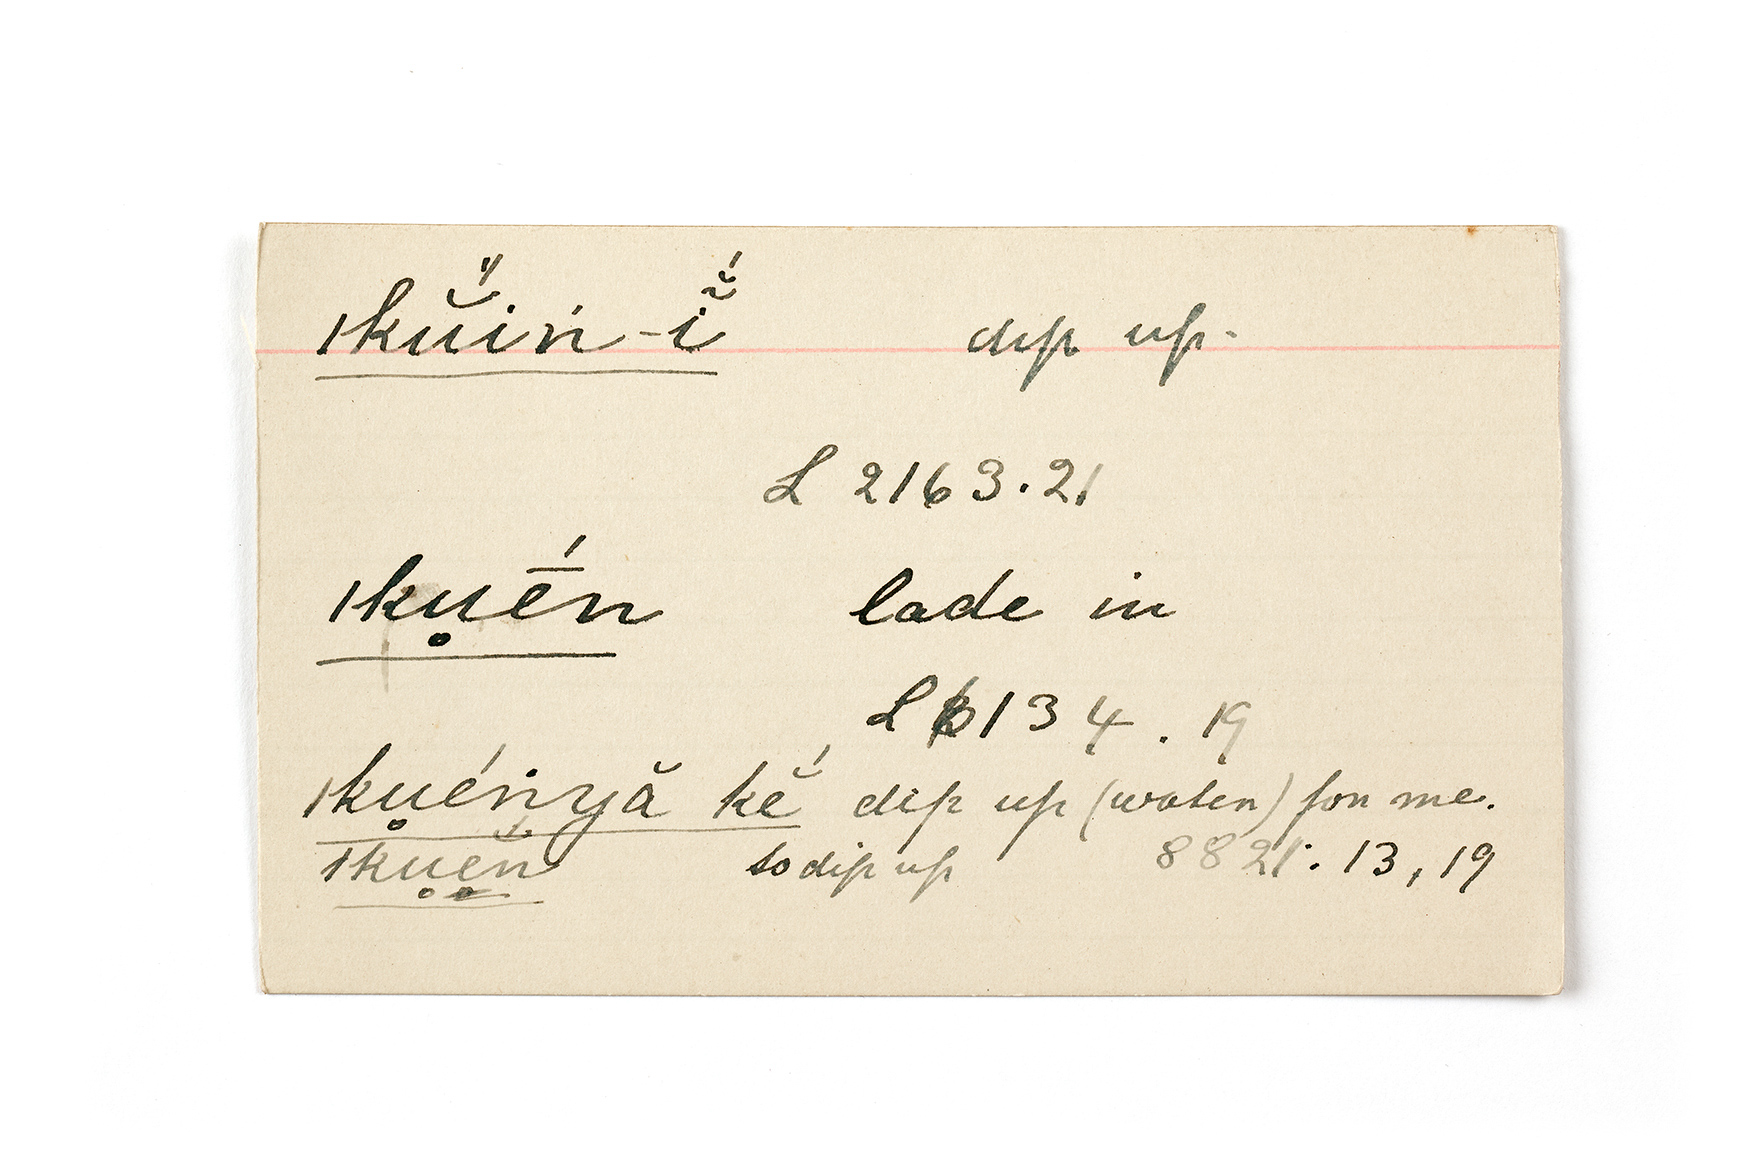 ıkŭ́iṅ-ĭ̃́ dip up.
L 2163.21
ıku̥ḗn lade in
L 6134.19
ıku̥éṅyă kĕ́ dip up (water) for me.
ıku̥e̥ň to dip up 8821. 13, 19